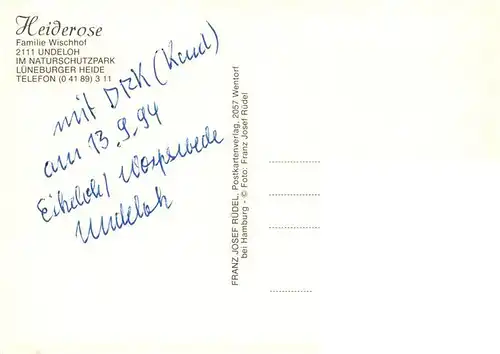 Heiderose
Familie Wischhof
2111 UNDELOH
IM NATURSCHUTZPARK
LÜNEBURGER HEIDE
TELEFON (0 41 89) 3 11
mit DRK (Kend)
am 13.9.94
Worpswede
Undeloh
FRANZ JOSEF RÜDEL, Postkartenverlag, 2057 Wentorf
bei Hamburg - © Foto: Franz Josef Rüdel